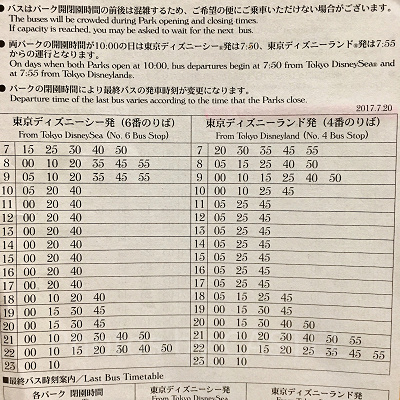 ●バスはパーク開閉園時間の前後は混雑するため、ご希望の便にご乗車いただけない場合がございます。
The buses will be crowded during Park opening and closing times.
If capacity is reached, you may be asked to wait for the next bus.
●両パークの開園時間が10:00の日は東京ディズニーシー®発は7:50、東京ディズニーランド®発は7:55
からの運行となります。
On days when both Parks open at 10:00, bus departures begin at 7:50 from Tokyo DisneySea® and
at 7:55 from Tokyo Disneyland®.
●パークの閉園時間により最終バスの発車時刻が変更になります。
Departure time of the last bus varies according to the time that the Parks close.
2017.7.20
東京ディズニーシー発(6番のりば) 東京ディズニーランド発(4番のりば)
From Tokyo DisneySea (No. 6 Bus Stop) From Tokyo Disneyland (No. 4 Bus Stop)
7 15 25 30 40 50 7 20 30 35 45 55
8 00 10 20 35 45 55 8 05 15 25 40 50
9 00 10 20 35 45 55 9 00 10 15 25 40 50
10 05 20 40 10 00 10 25 45
11 00 20 40 11 05 25 45
12 00 20 40 12 05 25 45
13 00 20 40 13 05 25 45
14 00 20 40 14 05 25 45
15 00 20 40 15 05 25 45
16 00 20 40 16 05 25 45
17 00 20 40 17 05 25 45
18 00 10 20 40 18 05 15 25 45
19 00 10 30 45 19 05 15 35 50
20 00 15 30 45 20 05 20 35 50
21 00 10 20 30 40 50 21 00 10 20 30 40 50
22 00 10 15 20 30 40 50 22 00 10 15 20 25 35 45 55
23 00 10 23 00 10
■最終バス時刻案内/Last Bus Timetable
各パーク 閉園時間 東京ディズニーシー発 東京ディズニーランド発